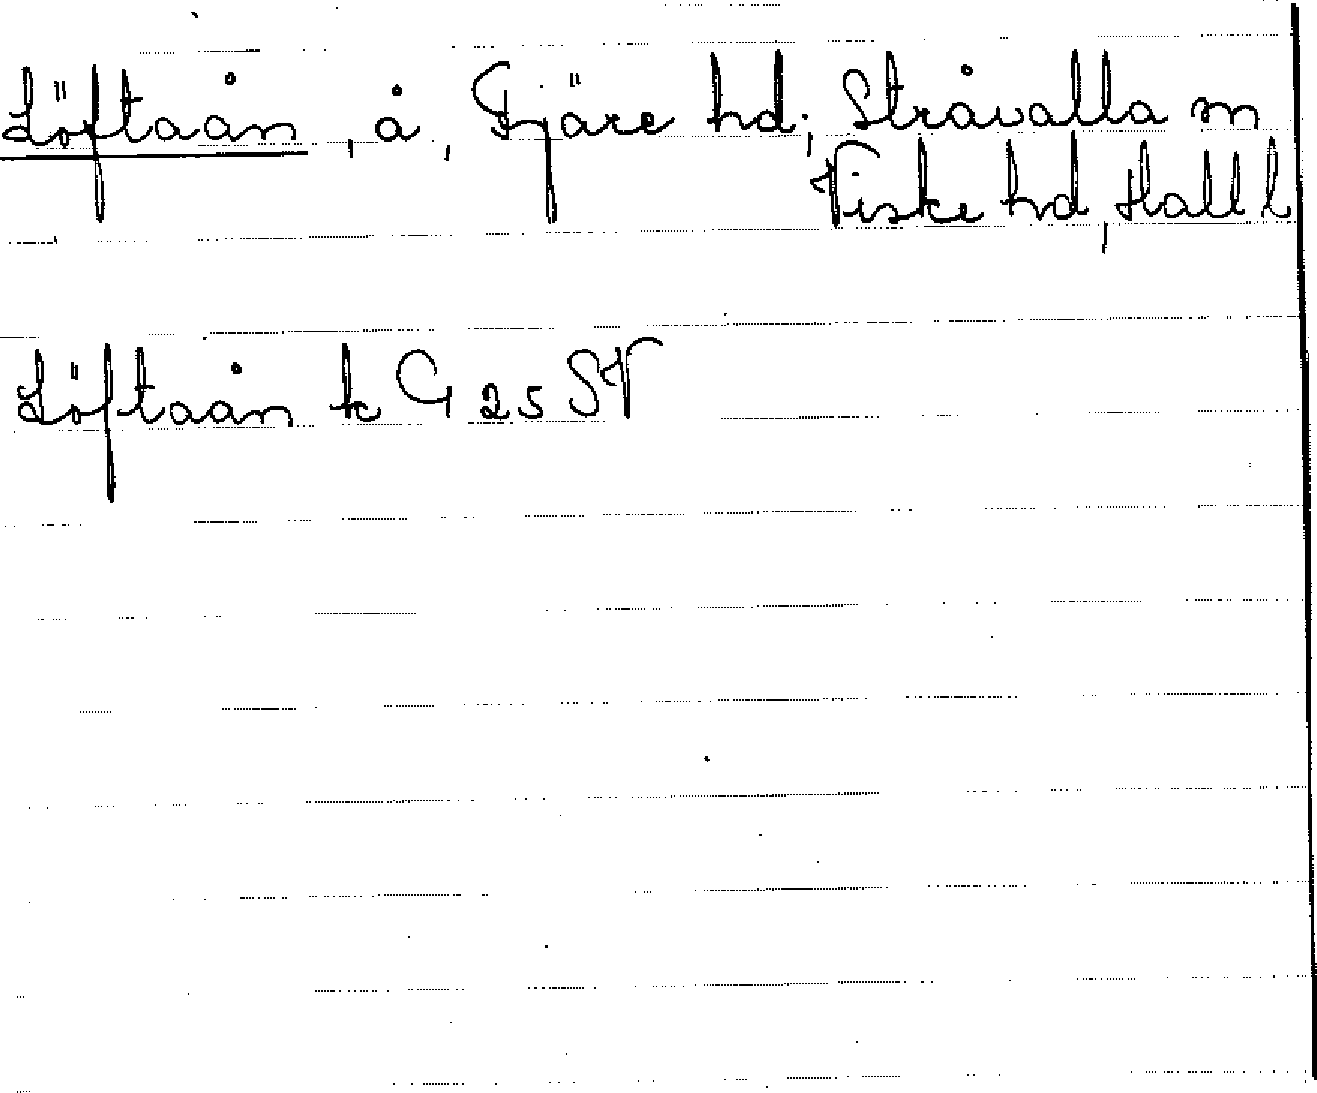 Löftaån, å, Fjäre hd; Stråvalla sn
Viske hd, Hall l
Löftaån k G 25 SV